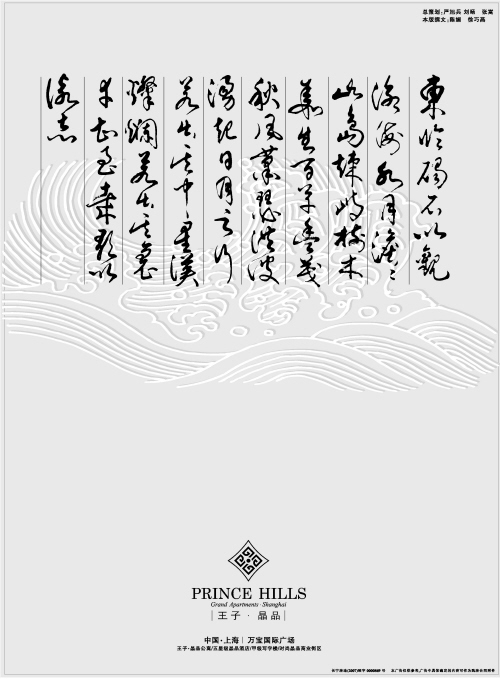 总策划:刘 张
本版撰文:陈 徐巧
東临碣石以觀
滄海水何澹〻
山島竦峙樹木
叢生百草豐茂
秋風蕭瑟洪波
湧起日月之行
若出其中星漢
燦爛若出其裏
幸甚至哉歌以
詠志
PRINCE HILLS
Grand Apartments · Shanghai
王子 · 晶品
中国·上海 | 万宝国际广场
王子·晶品公寓/五星级晶品酒店/甲级写字楼/时尚晶品商业街区